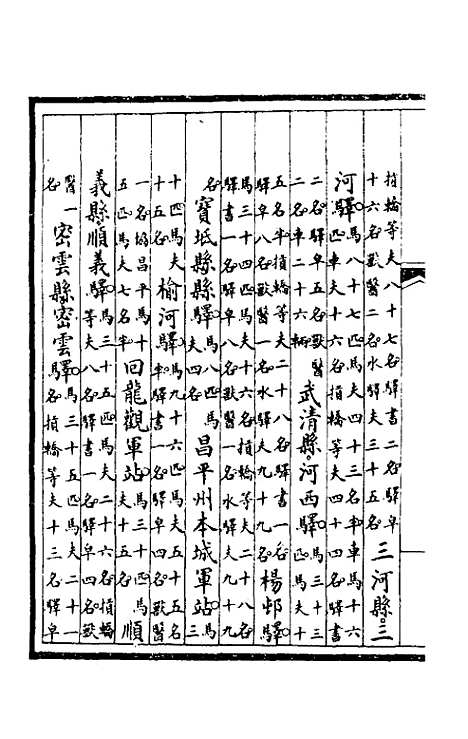 摃轎等夫八十七名驛書二名驛皁
十六名獸醫二名水驛夫三十五名
三河縣三
河驛
馬八十七匹馬夫四十三名半車馬十六
匹車夫十六名摃轎等夫四十四名驛書
二名驛皁五名獸醫
二名車二十六輛
武清縣河西驛
馬三十三
匹馬夫十
五名半摃轎等夫二十八名驛書一名
驛皁八名獸醫一名水驛夫九十九名
楊邨驛
馬三十匹馬夫十六名摃轎等夫二十八名
驛書一名驛皁八名獸醫一名水驛夫九十九
名
寶坻縣縣驛
馬八匹馬
夫四名
昌平州本城軍站
馬三
十匹馬夫
十五名
榆河驛
馬九十六匹馬夫五十五名
半驛書一名驛皁四名獸醫
一名塘昌平馬十
五匹馬夫七名半
回龍觀軍站
馬三十匹馬
夫十五名
順
義縣順義驛
馬三十五匹馬夫二十六名摃轎
等夫八名驛書一名驛皁四名獸
醫一
名
密雲縣密雲驛
馬三十五匹馬夫二十一
名摃轎等夫十三名驛皁